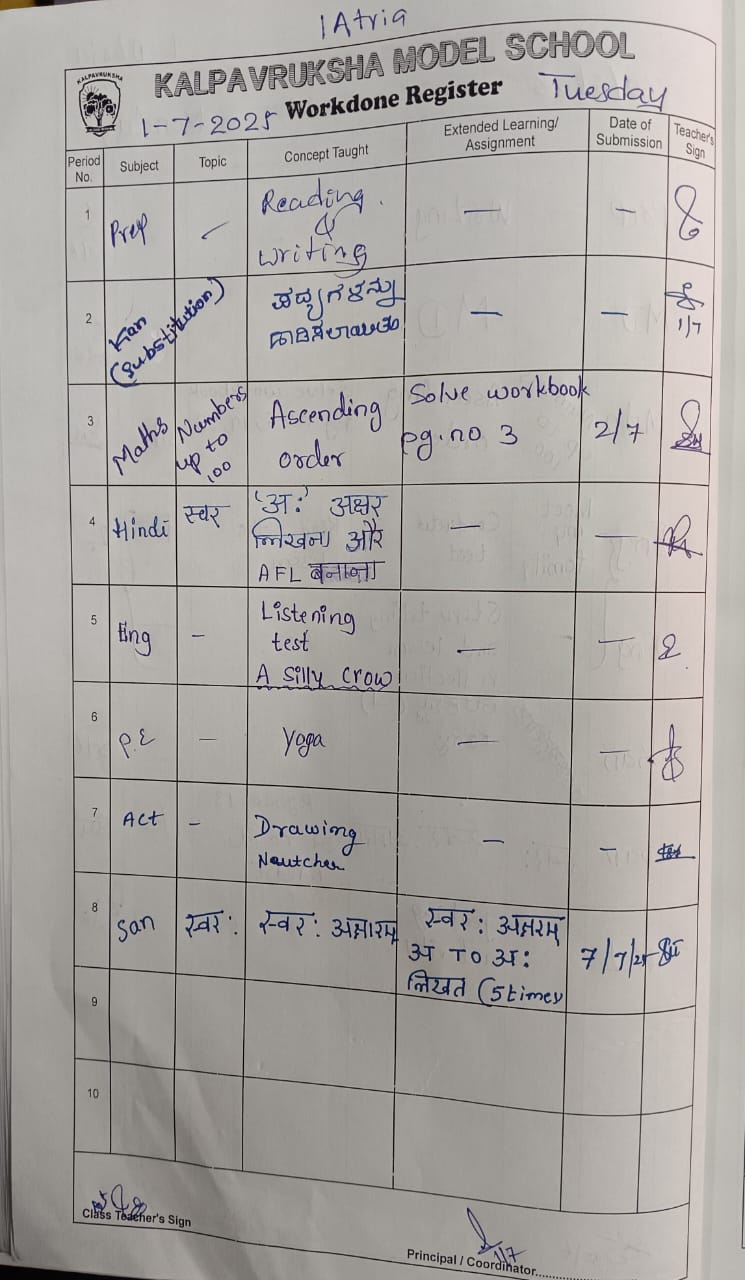 1 Atria
KALPAVRUKSHA
KALPAVRUKSHA MODEL SCHOOL
1-7-2025 Workdone Register Tuesday
Period No. Subject Topic Concept Taught Extended Learning/ Assignment Date of Submission Teacher's Sign
1 Prep ✓ Reading & writing — —
2 Kan (Substitution) ಪದ್ಯಗಳನ್ನು ಹಾಡಿಸಲಾಯಿತು — — 1/7
3 Maths Numbers up to 100 Ascending order Solve workbook pg.no 3 2/7
4 Hindi स्वर 'अ:' अक्षर लिखना और AFL बनाना — —
5 Eng - Listening test A silly crow — —
6 P.E — Yoga — —
7 Act - Drawing — —
8 San स्वर: स्वर: स्वर: अ TO अ: लिखत (5times 7/7/25
9
10
Class Teacher's Sign
1/7
Principal / Coordinator